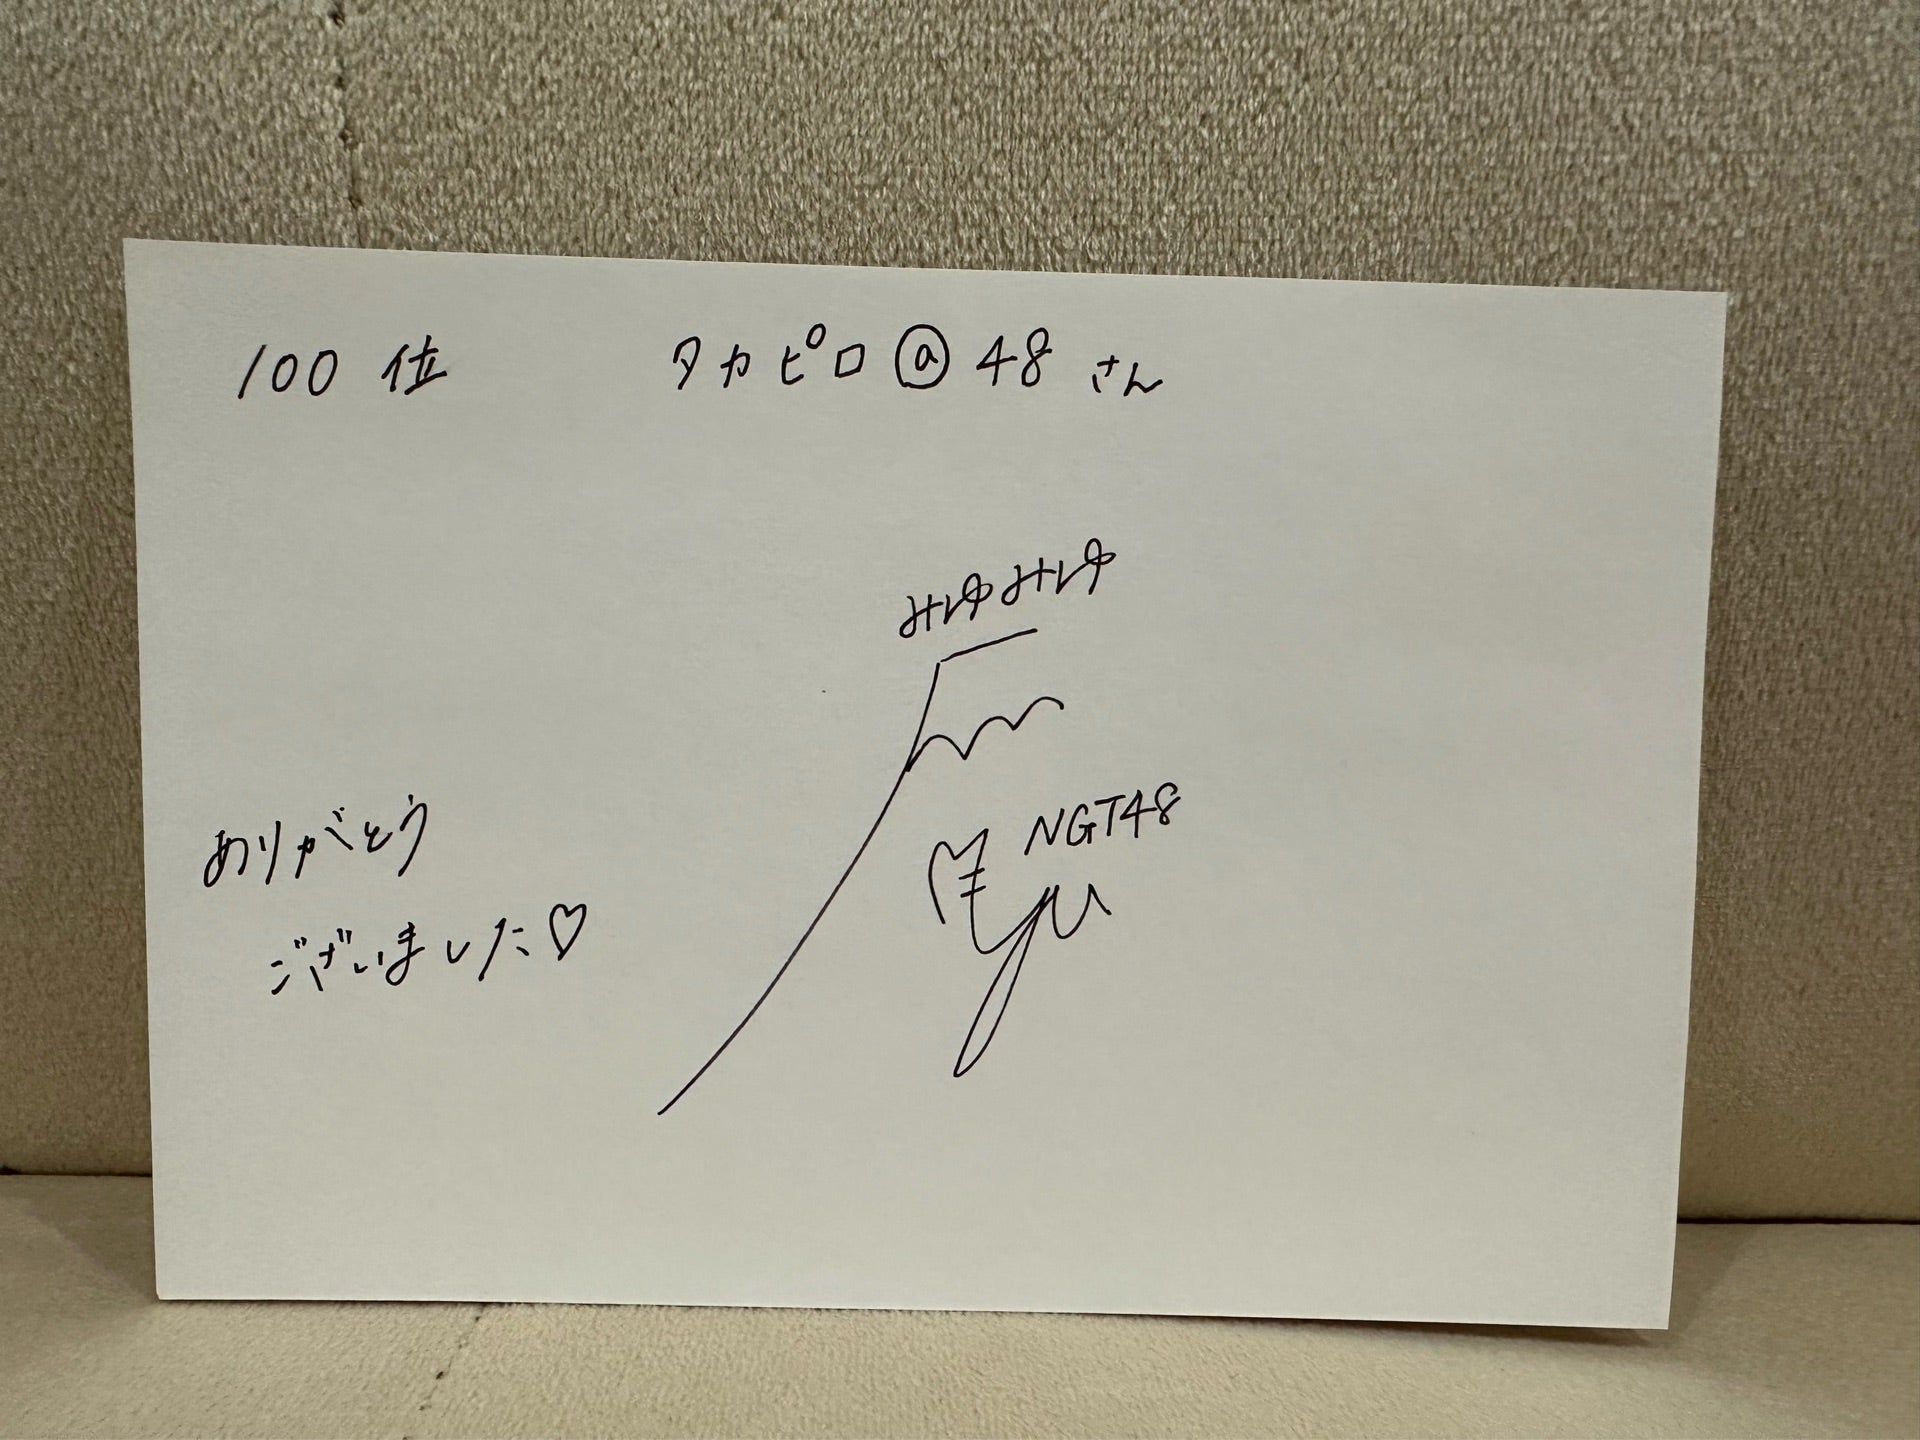 100位 タカピロ@48さん
みゆみゆ
NGT48
ありがとう
ございました♡